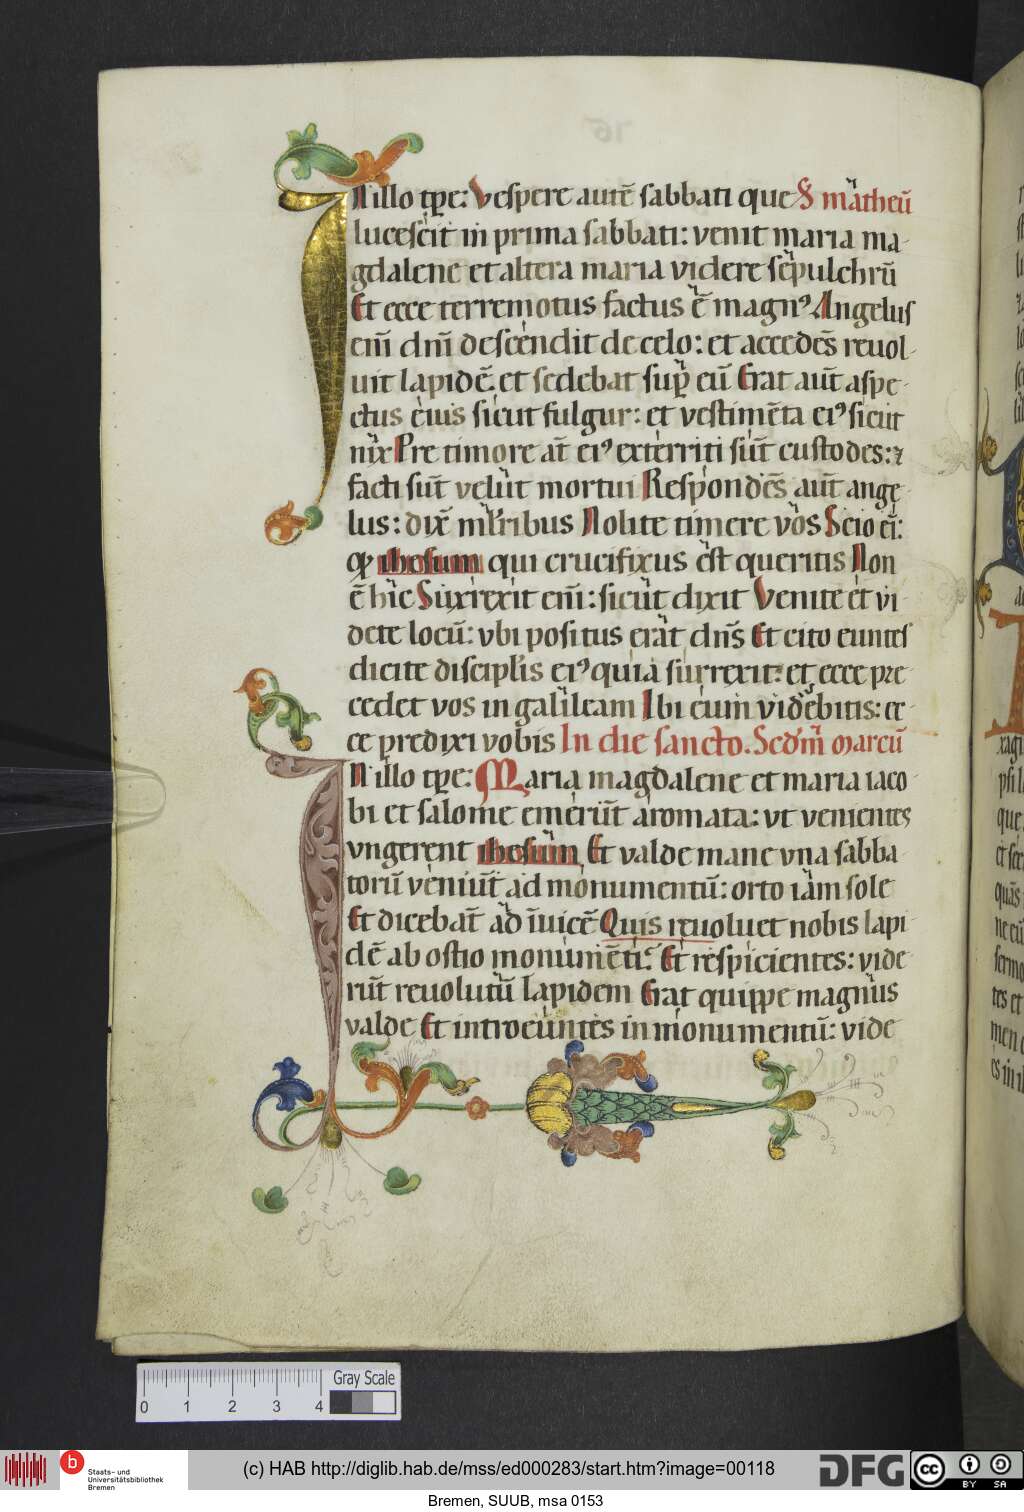 IN illo tp̄e: Vespere autē sabbati que S. mātheū
lucescit in prima sabbati: venit maria ma-
gdalene et altera maria videre sepulchrū
Et ecce terremotus factus ē magnꝰ Angelus
eni̅ dn̄i descendit de celo: et accedēs reuol-
uit lapidē. et sedebat sup̄ eū Erat aūt aspe-
ctus eius sicut fulgur: et vestimēta eiꝰ sicut
nix Pre timore aūt eiꝰ exterriti sūt custodes: ⁊
facti sūt velut mortui Respondēs aūt ange-
lus: dix̄ mlr̄ibus Nolite timere vos Scio eī:
qꝫ ihesum qui crucifixus est queritis Non
ē hic Surrexit eni̅: sicut dixit Venite et vi-
dete locū: vbi positus erat dn̄s Et cito euntes
dicite discipl̄is eiꝰ quia surrexit: et ecce pre-
cedet vos in galileam Ibi eum videbitis: ec-
ce predixi vobis In die sancto. Scdm̄ marcū
IN illo tp̄e: Maria magdalene et maria iaco-
bi et salome emerūt aromata: vt venientes
vngerent ihesum Et valde mane vna sabba-
torū veniūt ad monumentū: orto iam sole
Et dicebāt ad īuicē Quis reuoluet nobis lapi-
dē ab ostio monumēti? Et respicientes: vide-
rūt reuolutū lapidem Erat quippe magnus
valde Et introeuntes in monumentū: vide-
0 1 2 3 4 Gray Scale
b Staats- und Universitätsbibliothek Bremen
(c) HAB http://diglib.hab.de/mss/ed000283/start.htm?image=00118
DFG cc BY SA
Bremen, SUUB, msa 0153